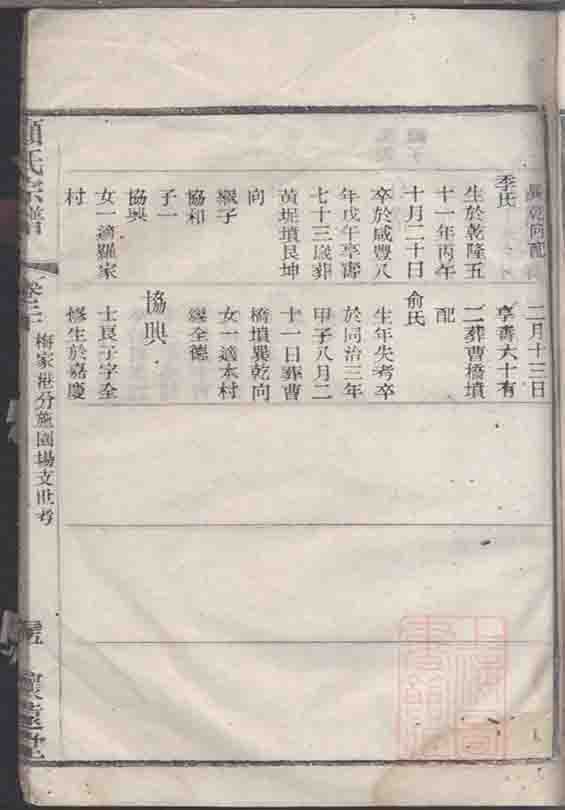 巽乾向配
季氏
生於乾隆五
十一年丙午
十月二十日
卒於咸豐八
年戊午享壽
七十三歲葬
黃坭墳艮坤
向
繼子
協和
子一
協興
女一適羅家
村
二月十三日
享壽六十有
二葬曹橋墳
配
俞氏
生年失考卒
於同治三年
甲子八月二
十一日葬曹
橋墳巽乾向
女一適本村
繼全德
協興
士良子字全
修生於嘉慶
顧氏宗譜
梅家港分施國場支世考
懷遠堂